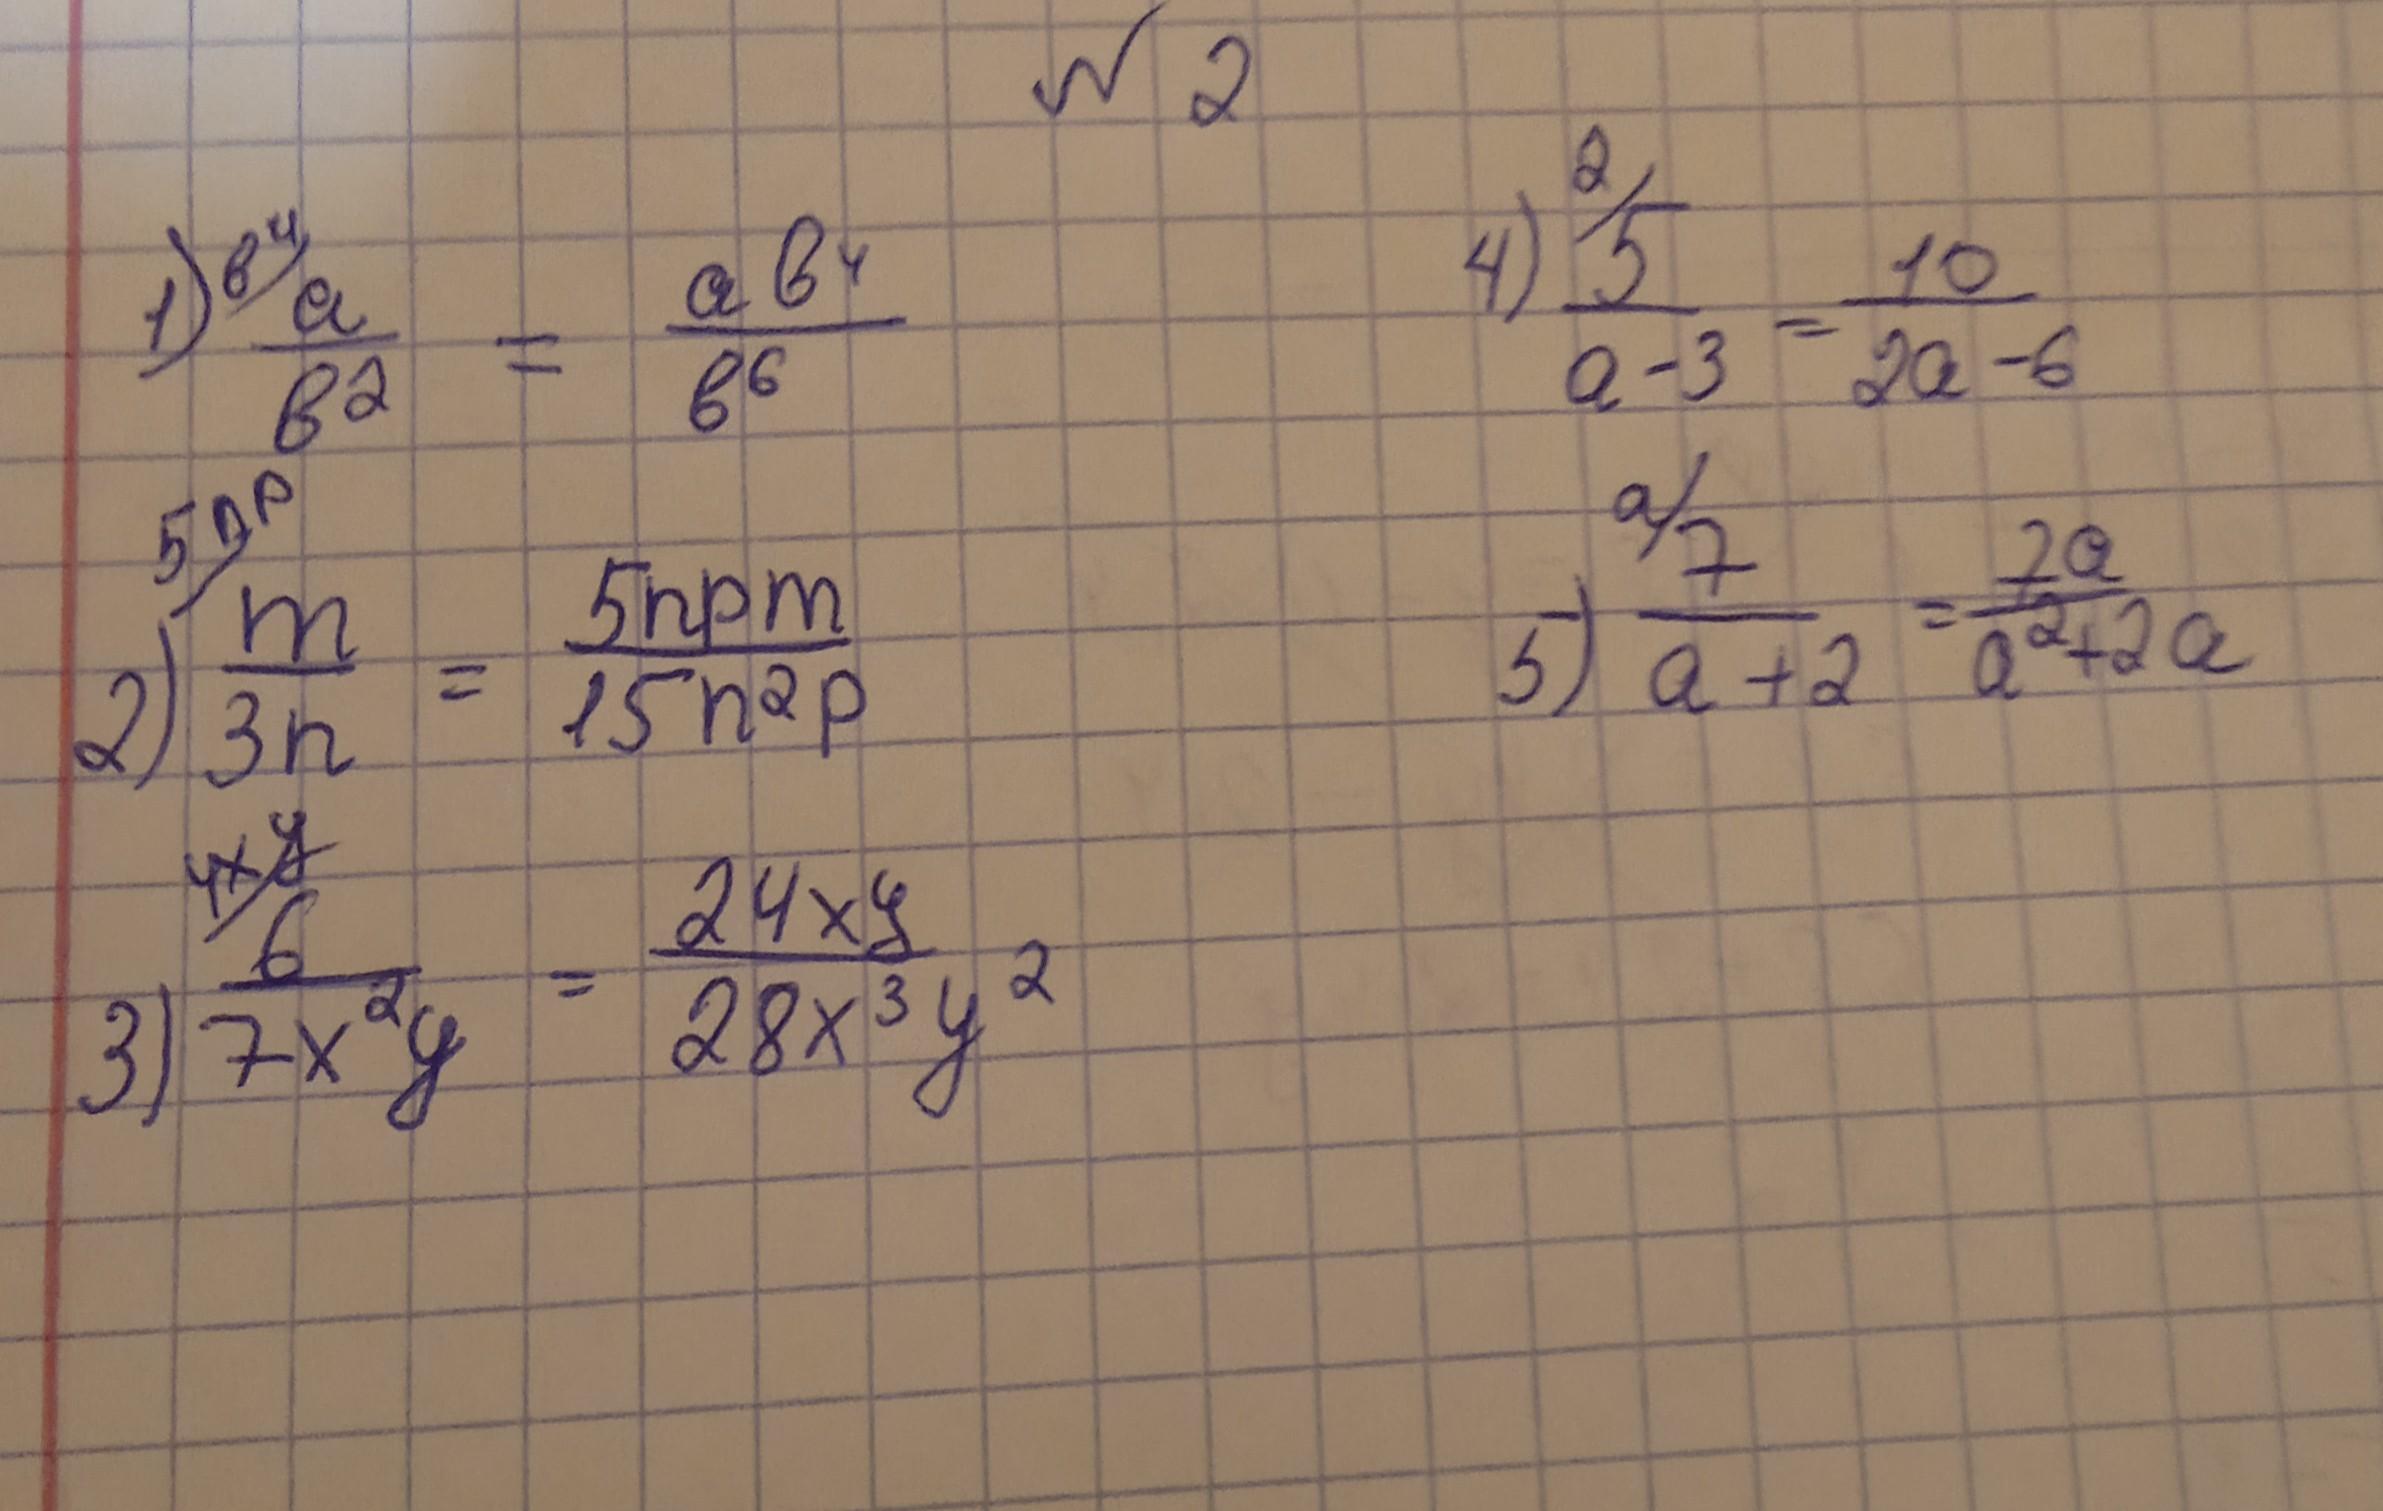 № 2
1) в⁴/ a/в² = aв⁴/в⁶
2) 5np/ m/3n = 5npm/15n²p
3) 4xy/ 6/7x²y = 24xy/28x³y²
4) 2/ 5/a-3 = 10/2a-6
5) a/ 7/a+2 = 7a/a²+2a